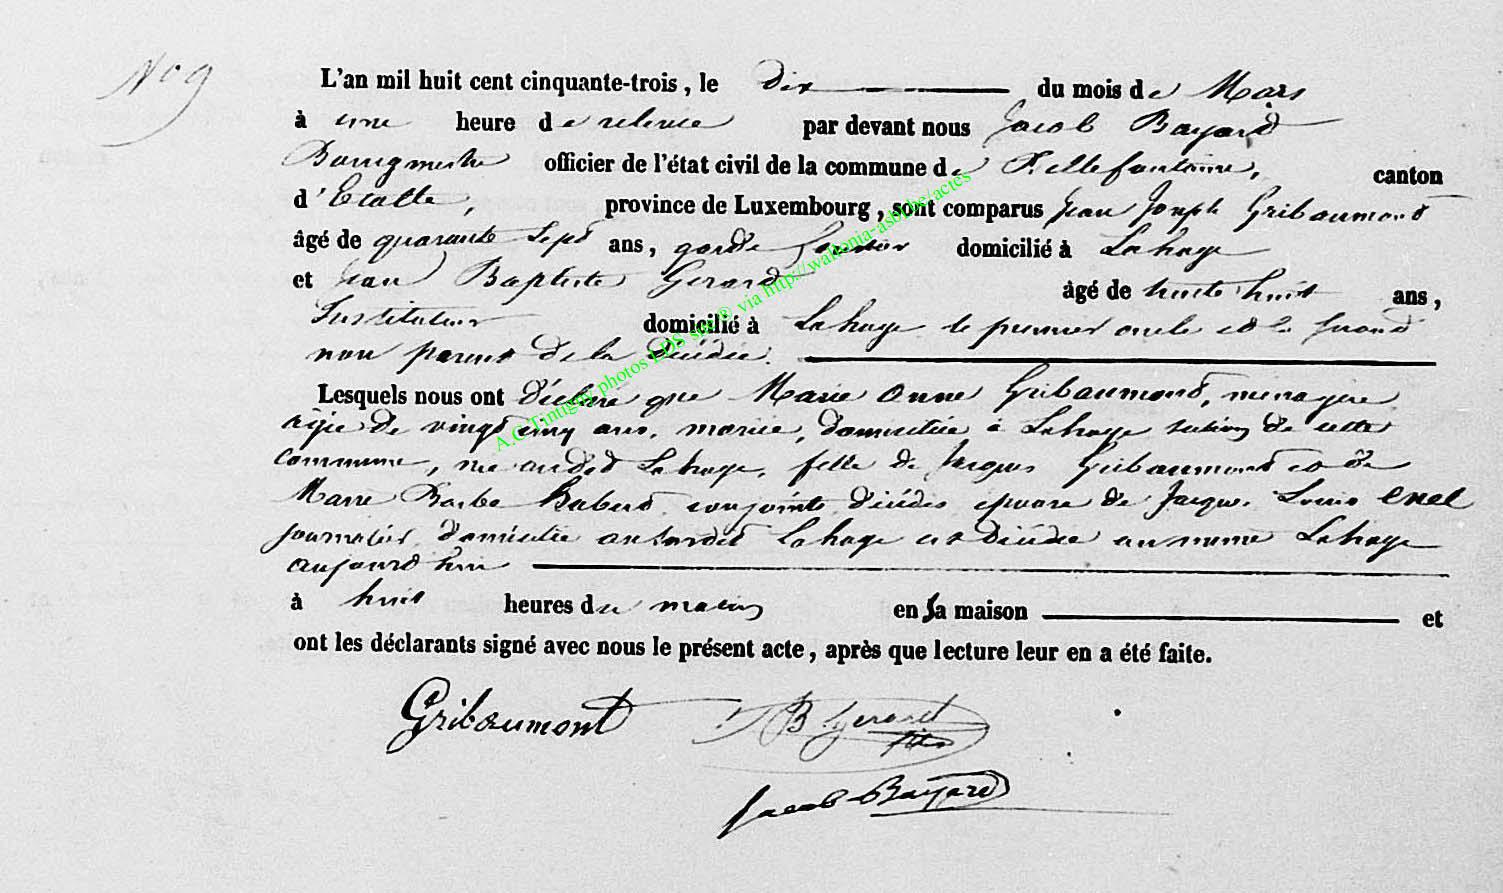 No 9
L'an mil huit cent cinquante-trois, le dix du mois de Mars
à une heure de relevée par devant nous Jacob Bayard
Bourgmestre officier de l'état civil de la commune de Bellefontaine, canton
d'Etalle, province de Luxembourg, sont comparus Jean Joseph Gribaumont
âgé de quarante sept ans, garde forestier domicilié à Lahage
et Jean Baptiste Gerard âgé de trente huit ans,
Instituteur domicilié à Lahage le premier oncle et le second
non parent de la décédée.
Lesquels nous ont déclaré que Marie Anne Gribaumont, ménagère
âgée de vingt cinq ans, mariée, domiciliée à Lahage section de cette
commune, née audit Lahage, fille de Jacques Gribaumont et de
Marie Barbe Hubert conjoints décédés épouse de Jacques Louis
journalier, domicilié au susdit Lahage est décédée au même Lahage
aujourd'hui
à huit heures du matin en sa maison et
ont les déclarants signé avec nous le présent acte, après que lecture leur en a été faite.
Gribaumont J B Gerard
Jacob Bayard
A.G Tintigny photos LDS sur ® via http://wallonia-asbl.be/actes